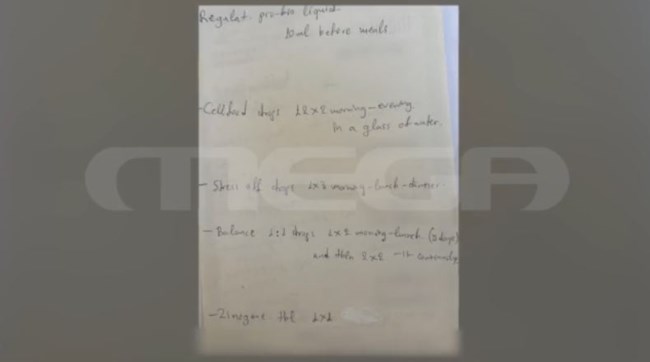 Regulat. pro-bio liquid
10ml before meals.
- Cellfood drops 12x2 morning-evening
in a glass of water.
MEGA
- Stress off drops 1x3 morning-lunch-dinner.
- Balance 1:1 drops 1x2 morning-lunch (2 days)
and then 2x2
- Zinogene tbl 1x1